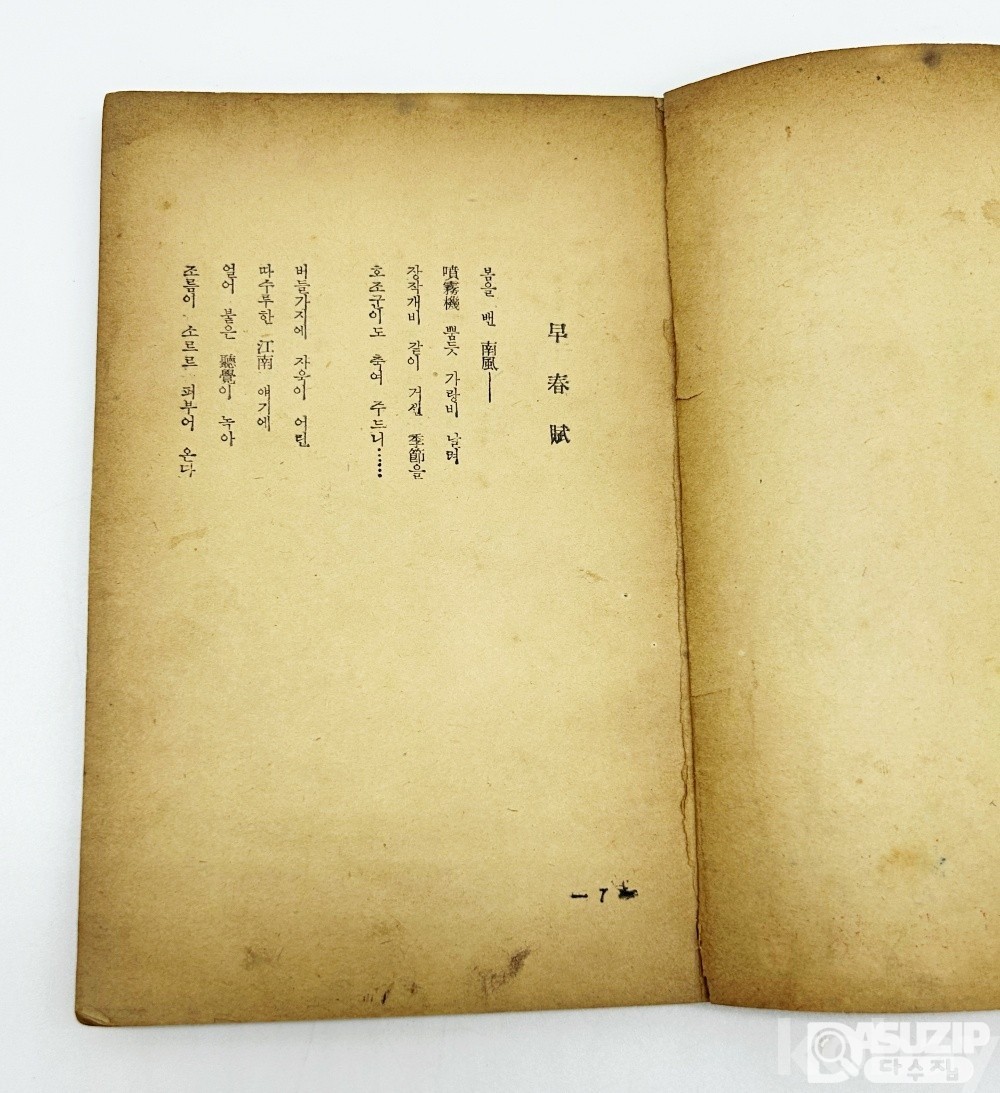 早春賦
봄을 밴 南風──
噴霧機 뿜듯 가랑비 날며
장작개비 같이 거센 季節을
호조군이도 축여 주드니……
버들가지에 자욱이 어린
따수루한 江南 얘기에
얼어 붙은 聽覺이 녹아
조름이 소르르 퍼부어 온다
— 7 —
DASUZIP
다수집